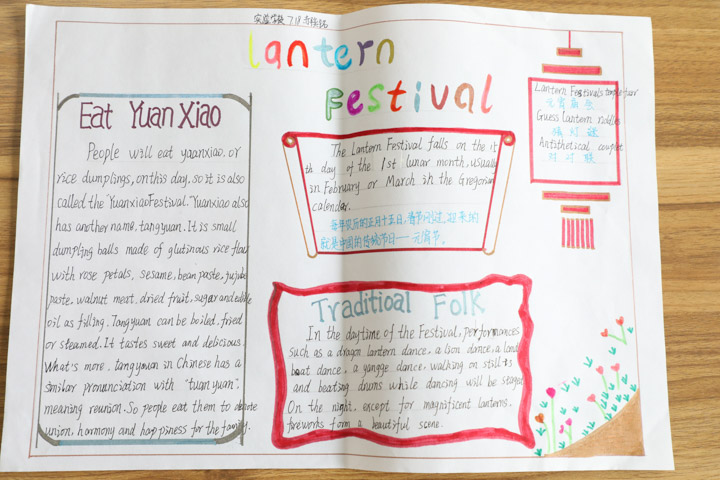 实验学校 7.18
Lantern
Festival
Eat Yuan Xiao
People will eat yuanxiao, or
rice dumplings, on this day, so it is also
called the "Yuanxiao Festival." Yuanxiao also
has another name, tangyuan. It is small
dumpling balls made of glutinous rice flour
with rose petals, sesame, bean paste, jujube
paste, walnut meat, dried fruit, sugar and edible
oil as filling. Tangyuan can be boiled, fried
or steamed. It tastes sweet and delicious.
What's more, tangyuan in Chinese has a
similar pronunciation with "tuanyuan",
meaning reunion. So people eat them to denote
union, harmony and happiness for the family.
The Lantern Festival falls on the 15
th day of the 1st lunar month, usually
in February or March in the Gregorian
calendar.
每年农历的正月十五日,春节刚过,迎来的
就是中国的传统节日——元宵节。
Traditioal Folk
In the daytime of the Festival, performances
such as a dragon lantern dance, a lion dance, a land
boat dance, a yangge dance, walking on stilts
and beating drums while dancing will be staged.
On the night, except for magnificent lanterns,
fireworks form a beautiful scene.
Lantern Festivals temple fair
元宵庙会
Guess lantern riddles
猜灯谜
Antithetical couplet
对对联